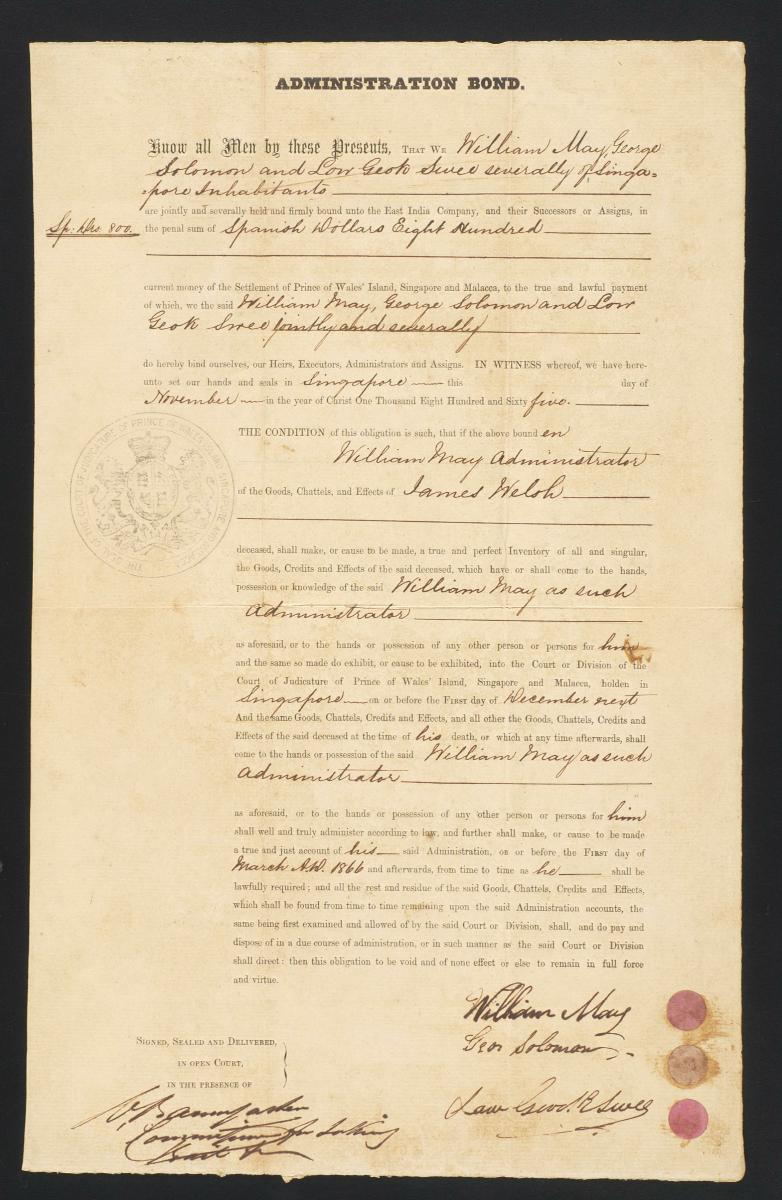 ADMINISTRATION BOND.
Know all Men by these Presents, THAT WE William May, George
Solomon and Low Geok Swee severally of Singa=
=pore Inhabitants
are jointly and severally held and firmly bound unto the East India Company, and their Successors or Assigns, in
Sp: Drs. 800.
the penal sum of Spanish Dollars Eight Hundred
current money of the Settlement of Prince of Wales' Island, Singapore and Malacca, to the true and lawful payment
of which, we the said William May, George Solomon and Low
Geok Swee jointly and severally
do hereby bind ourselves, our Heirs, Executors, Administrators and Assigns. IN WITNESS whereof, we have here-
unto set our hands and seals in Singapore this day of
November in the year of Christ One Thousand Eight Hundred and Sixty five.
THE CONDITION of this obligation is such, that if the above bound en
William May Administrator
of the Goods, Chattels, and Effects of James Welsh
deceased, shall make, or cause to be made, a true and perfect Inventory of all and singular,
the Goods, Credits and Effects of the said deceased, which have or shall come to the hands,
possession or knowledge of the said William May as such
Administrator
as aforesaid, or to the hands or possession of any other person or persons for him
and the same so made do exhibit, or cause to be exhibited, into the Court or Division of the
Court of Judicature of Prince of Wales' Island, Singapore and Malacca, holden in
Singapore on or before the FIRST day of December next
And the same Goods, Chattels, Credits and Effects, and all other the Goods, Chattels, Credits and
Effects of the said deceased at the time of his death, or which at any time afterwards, shall
come to the hands or possession of the said William May as such
Administrator
as aforesaid, or to the hands or possession of any other person or persons for him
shall well and truly administer according to law, and further shall make, or cause to be made
a true and just account of his said Administration, on or before the FIRST day of
March A.D. 1866 and afterwards, from time to time as he shall be
lawfully required; and all the rest and residue of the said Goods, Chattels, Credits and Effects,
which shall be found from time to time remaining upon the said Administration accounts, the
same being first examined and allowed of by the said Court or Division, shall, and do pay and
dispose of in a due course of administration, or in such manner as the said Court or Division
shall direct: then this obligation to be void and of none effect or else to remain in full force
and virtue.
William May
Geo: Solomon
SIGNED, SEALED AND DELIVERED,
IN OPEN COURT,
IN THE PRESENCE OF
Law Geok Swee